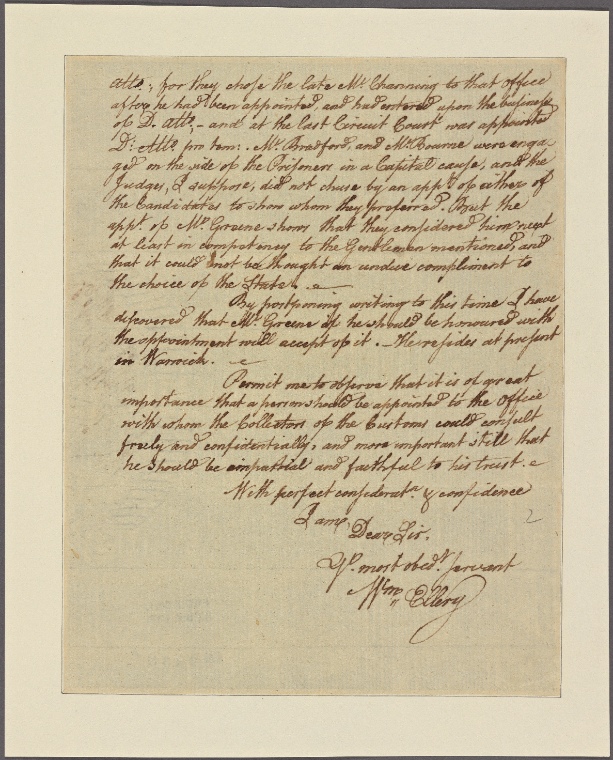 atto; for they chose the late Mr. Channing to that office
after he had been appointed, and had entered upon the business
of D. atto,- and at the last Circuit Court was appointed
D: Atto. pro tem: . Mr. Bradford, and Mr. Bourne were enga-
ged on the side of the Prisoners in a Capital cause, and the
Judges, I suppose, did not chuse by an appt. of either of
the Candidates to show whom they preferred. But the
appt. of Mr. Greene shows that they considered him next
at least in competency to the Gentlemen mentioned, and
that it could not be thought an undue compliment to
the choice of the State.
By postponing writing to this time I have
discovered that Mr. Greene if he should be honoured with
the appointment will accept of it. - He resides at present
in Warwick.
Permit me to observe that it is of great
importance that a person should be appointed to the office
with whom the Collectors of the Customs could consult
freely and confidentially, and more important still that
he should be impartial and faithful to his trust.
With perfect consideratn. & confidence
I am,
Dear Sir,
Yr. most obedt. servant
Wm. Ellery
2